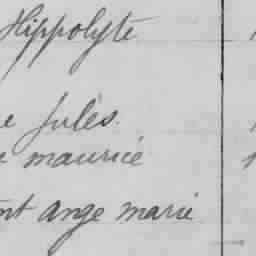 Hippolyte
e Jules.
e maurice
nt ange marie